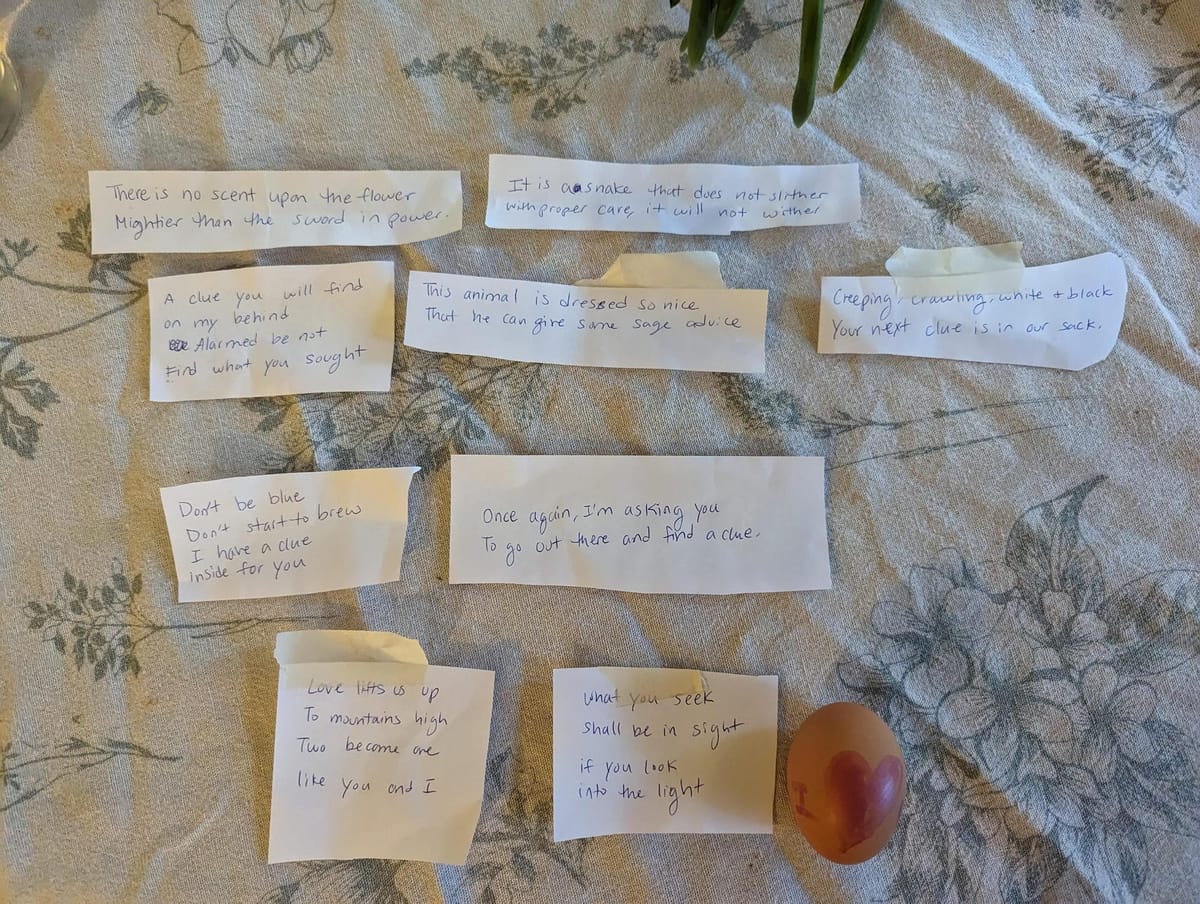 There is no scent upon the flower
Mightier than the sword in power.
It is a snake that does not slither
with proper care, it will not wither
A clue you will find
on my behind
Alarmed be not
Find what you sought
This animal is dressed so nice
That he can give some sage advice
Creeping, crawling, white + black
Your next clue is in our sack.
Don't be blue
Don't start to brew
I have a clue
inside for you
Once again, I'm asking you
To go out there and find a clue.
Love lifts us up
To mountains high
Two become one
like you and I
What you seek
shall be in sight
if you look
into the light
I